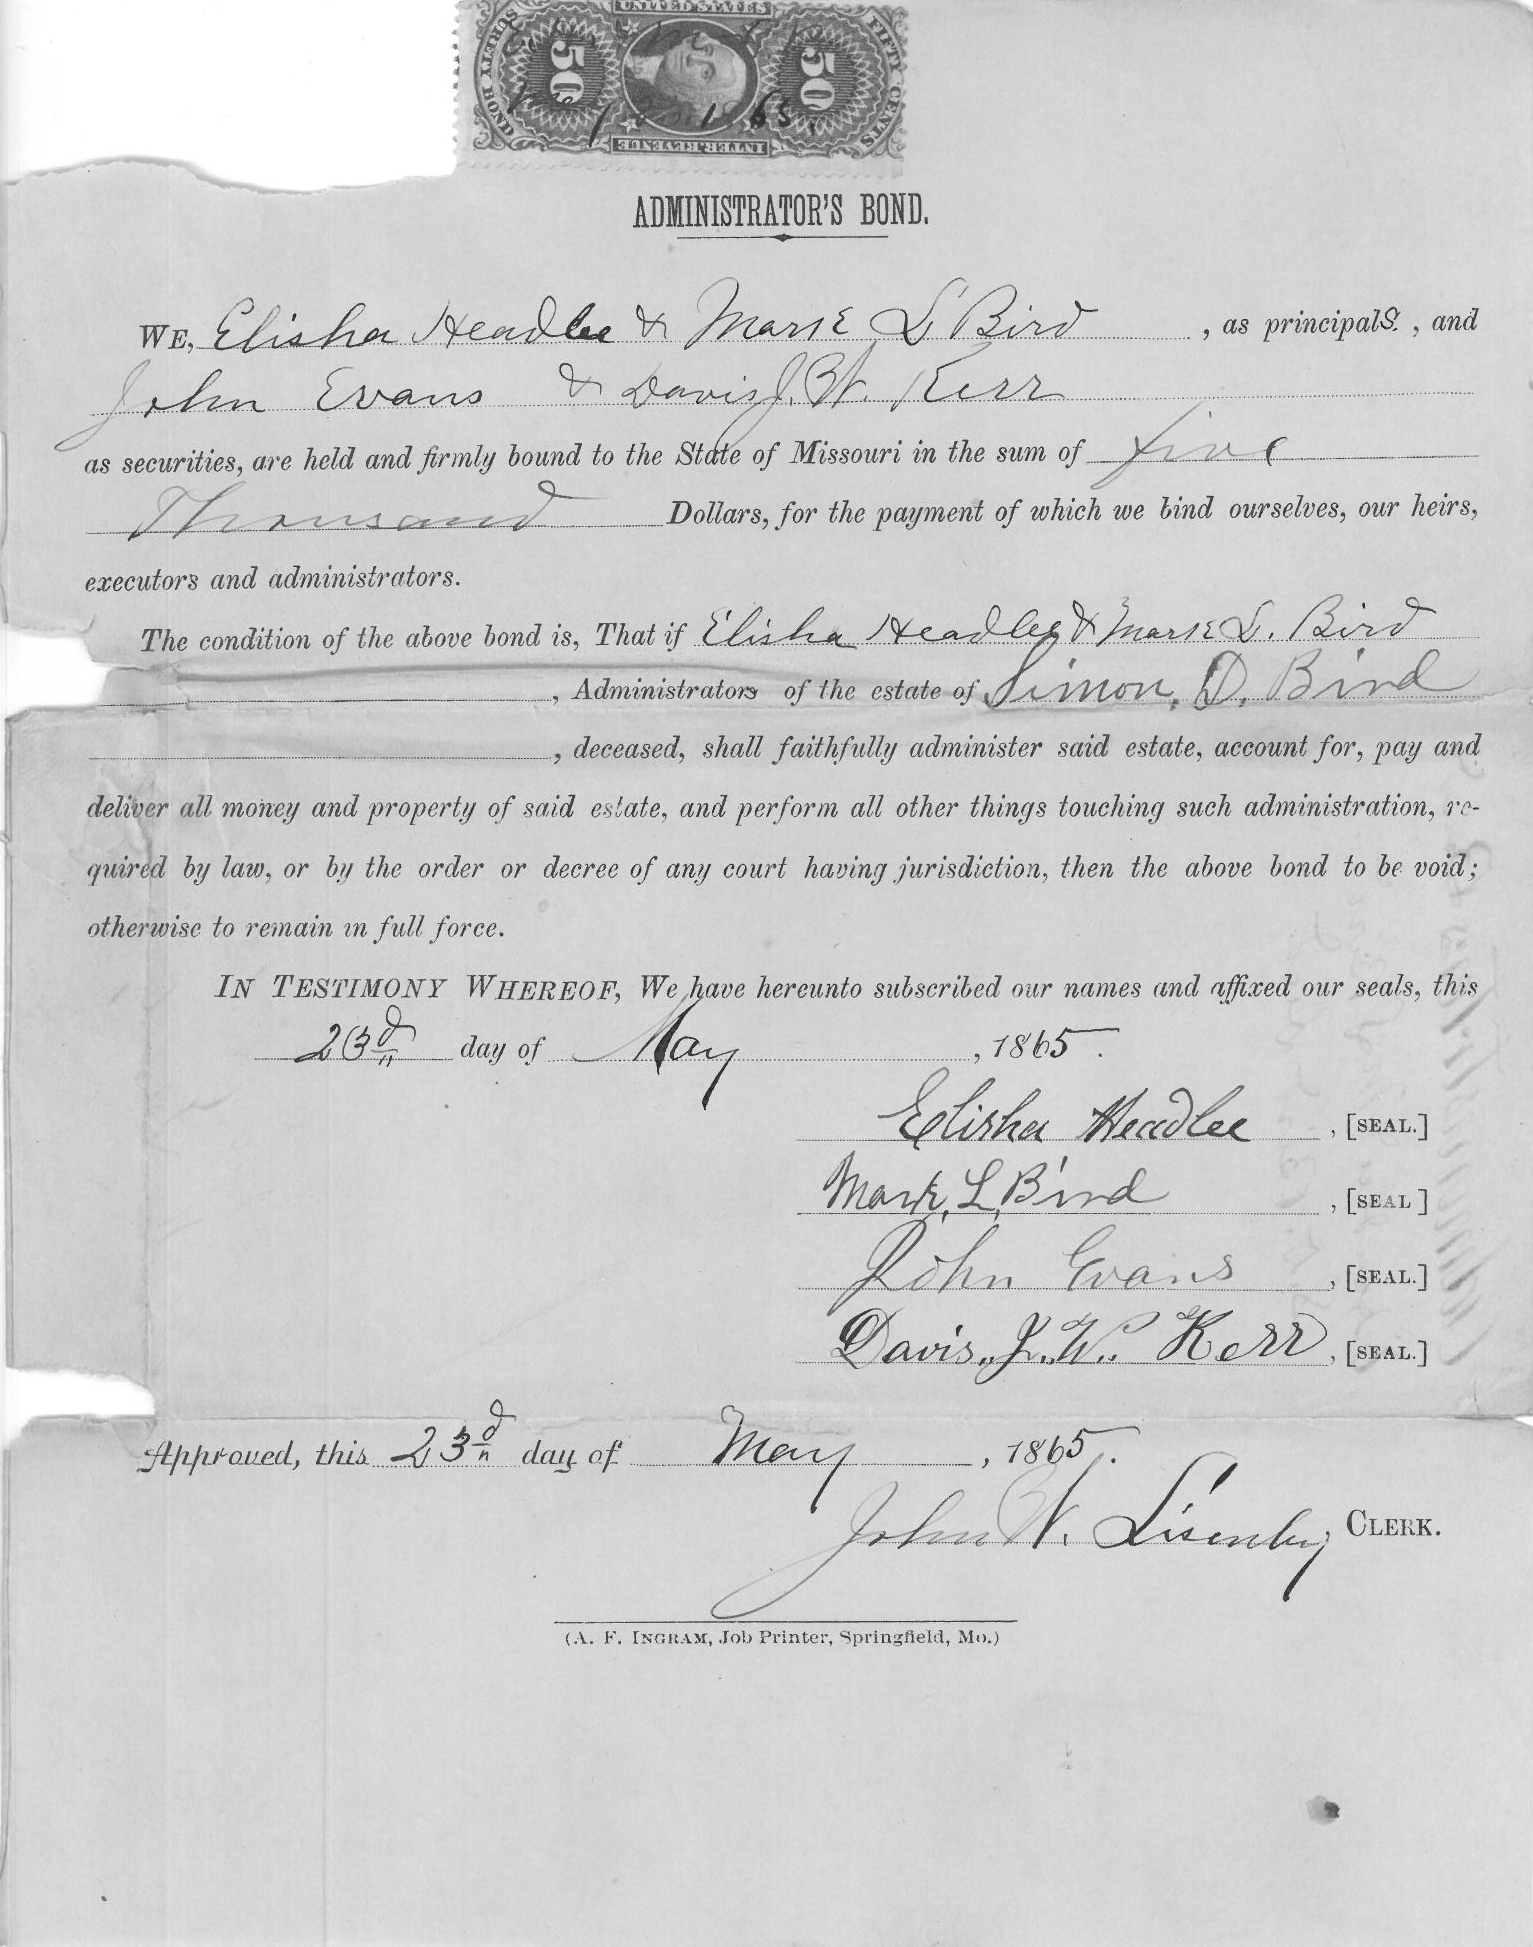 UNITED STATES
SURETY BOND
FIFTY CENTS
50
50
INTER. REVENUE
65
ADMINISTRATOR'S BOND.
WE, Elisha Headlee & Mark L Bird , as principals. , and
John Evans & Davis J. W. Kerr
as securities, are held and firmly bound to the State of Missouri in the sum of five
Thousand Dollars, for the payment of which we bind ourselves, our heirs,
executors and administrators.
The condition of the above bond is, That if Elisha Headlee & Mark L. Bird
, Administrators of the estate of Simon. D. Bird
, deceased, shall faithfully administer said estate, account for, pay and
deliver all money and property of said estate, and perform all other things touching such administration, re-
quired by law, or by the order or decree of any court having jurisdiction, then the above bond to be void;
otherwise to remain in full force.
IN TESTIMONY WHEREOF, We have hereunto subscribed our names and affixed our seals, this
23d day of May , 1865.
Elisha Headlee , [SEAL.]
Mark. L. Bird , [SEAL]
John Evans , [SEAL.]
Davis. J. W. Kerr , [SEAL.]
Approved, this 23d day of May , 1865.
John W. Lisenby, CLERK.
(A. F. INGRAM, Job Printer, Springfield, Mo.)